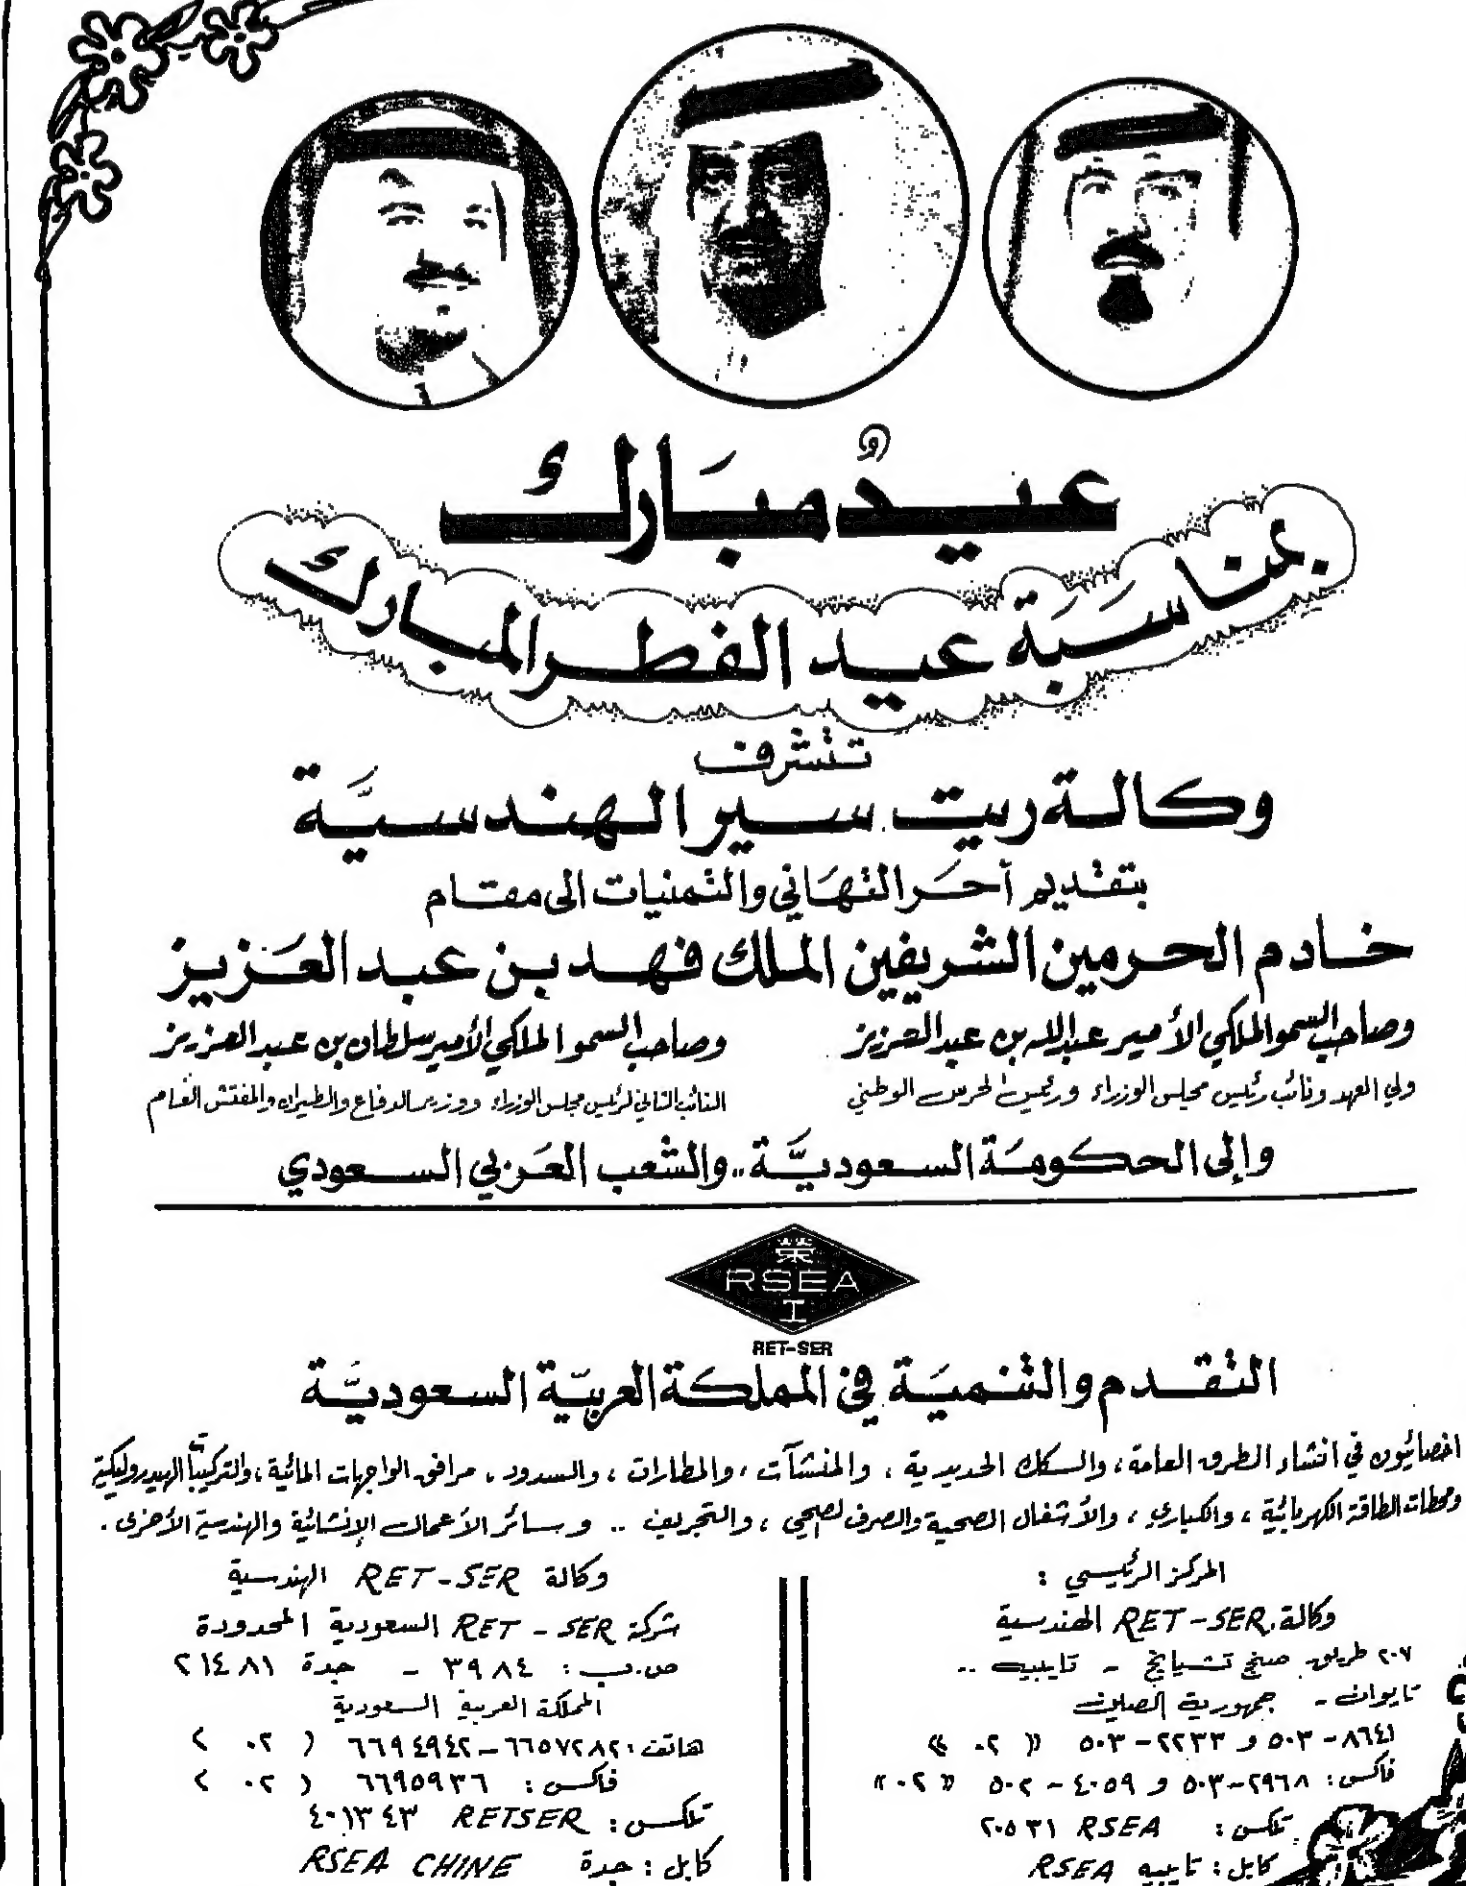 عيدٌ مبَارك
بمناسَبَة عيد الفطر المبارك
تتشرف
وكالة ريت سير الهندسيَّة
بتقديم أحَر التهَاني والتمنيات الى مقام
خادم الحرمين الشريفين الملك فهد بن عبد العَزيز
وصاحب السمو الملكي الأمير عبدالله بن عبد العزيز
ولي العهد ونائب رئيس مجلس الوزراء ورئيس الحرس الوطني
وصاحب السمو الملكي الأمير سلطان بن عبد العزيز
النائب الثاني لرئيس مجلس الوزراء ووزير الدفاع والطيران والمفتش العام
وإلى الحكومَة السعوديَّة .. والشعب العَربي السعودي
榮
RSEA
工
RET-SER
التقدم والتنميَة في المملكة العربيّة السعوديَّة
اخصائيون في انشاء الطرق العامة ، والسكك الحديدية ، والمنشآت ، والمطارات ، والسدود ، مرافق الواجهات المائية ، والتركيبات الهيدروليكية
ومحطات الطاقة الكهربائية ، والكباري ، والأشغال الصحية والصرف الصحي ، والتجريف .. وسائر الأعمال الإنشائية والهندسية الأخرى .
المركز الرئيسي :
وكالة RET-SER الهندسية
٢٠٧ طريق صنج تشيانج - تايبيه ..
تايوان - جمهورية الصين
٨٦٤١-٥٠٣ و ٢٢٣٣-٥٠٣ « ٠٢ »
فاكس : ٢٩٦٨-٥٠٣ و ٤٠٥٩-٥٠٢ « ٠٢ »
تلكس : RSEA ٢٠٥٣١
كابل : تايبيه RSEA
وكالة RET-SER الهندسية
شركة RET - SER السعودية المحدودة
ص.ب : ٣٩٨٤ - جدة ٢١٤٨١
المملكة العربية السعودية
هاتف : ٦٦٥٧٢٨٢-٦٦٩٤٩٤٢ ( ٠٢ )
فاكس : ٦٦٩٥٩٣٦ ( ٠٢ )
تلكس : RETSER ٤٠١٣٤٣
كابل : جدة RSEA CHINE